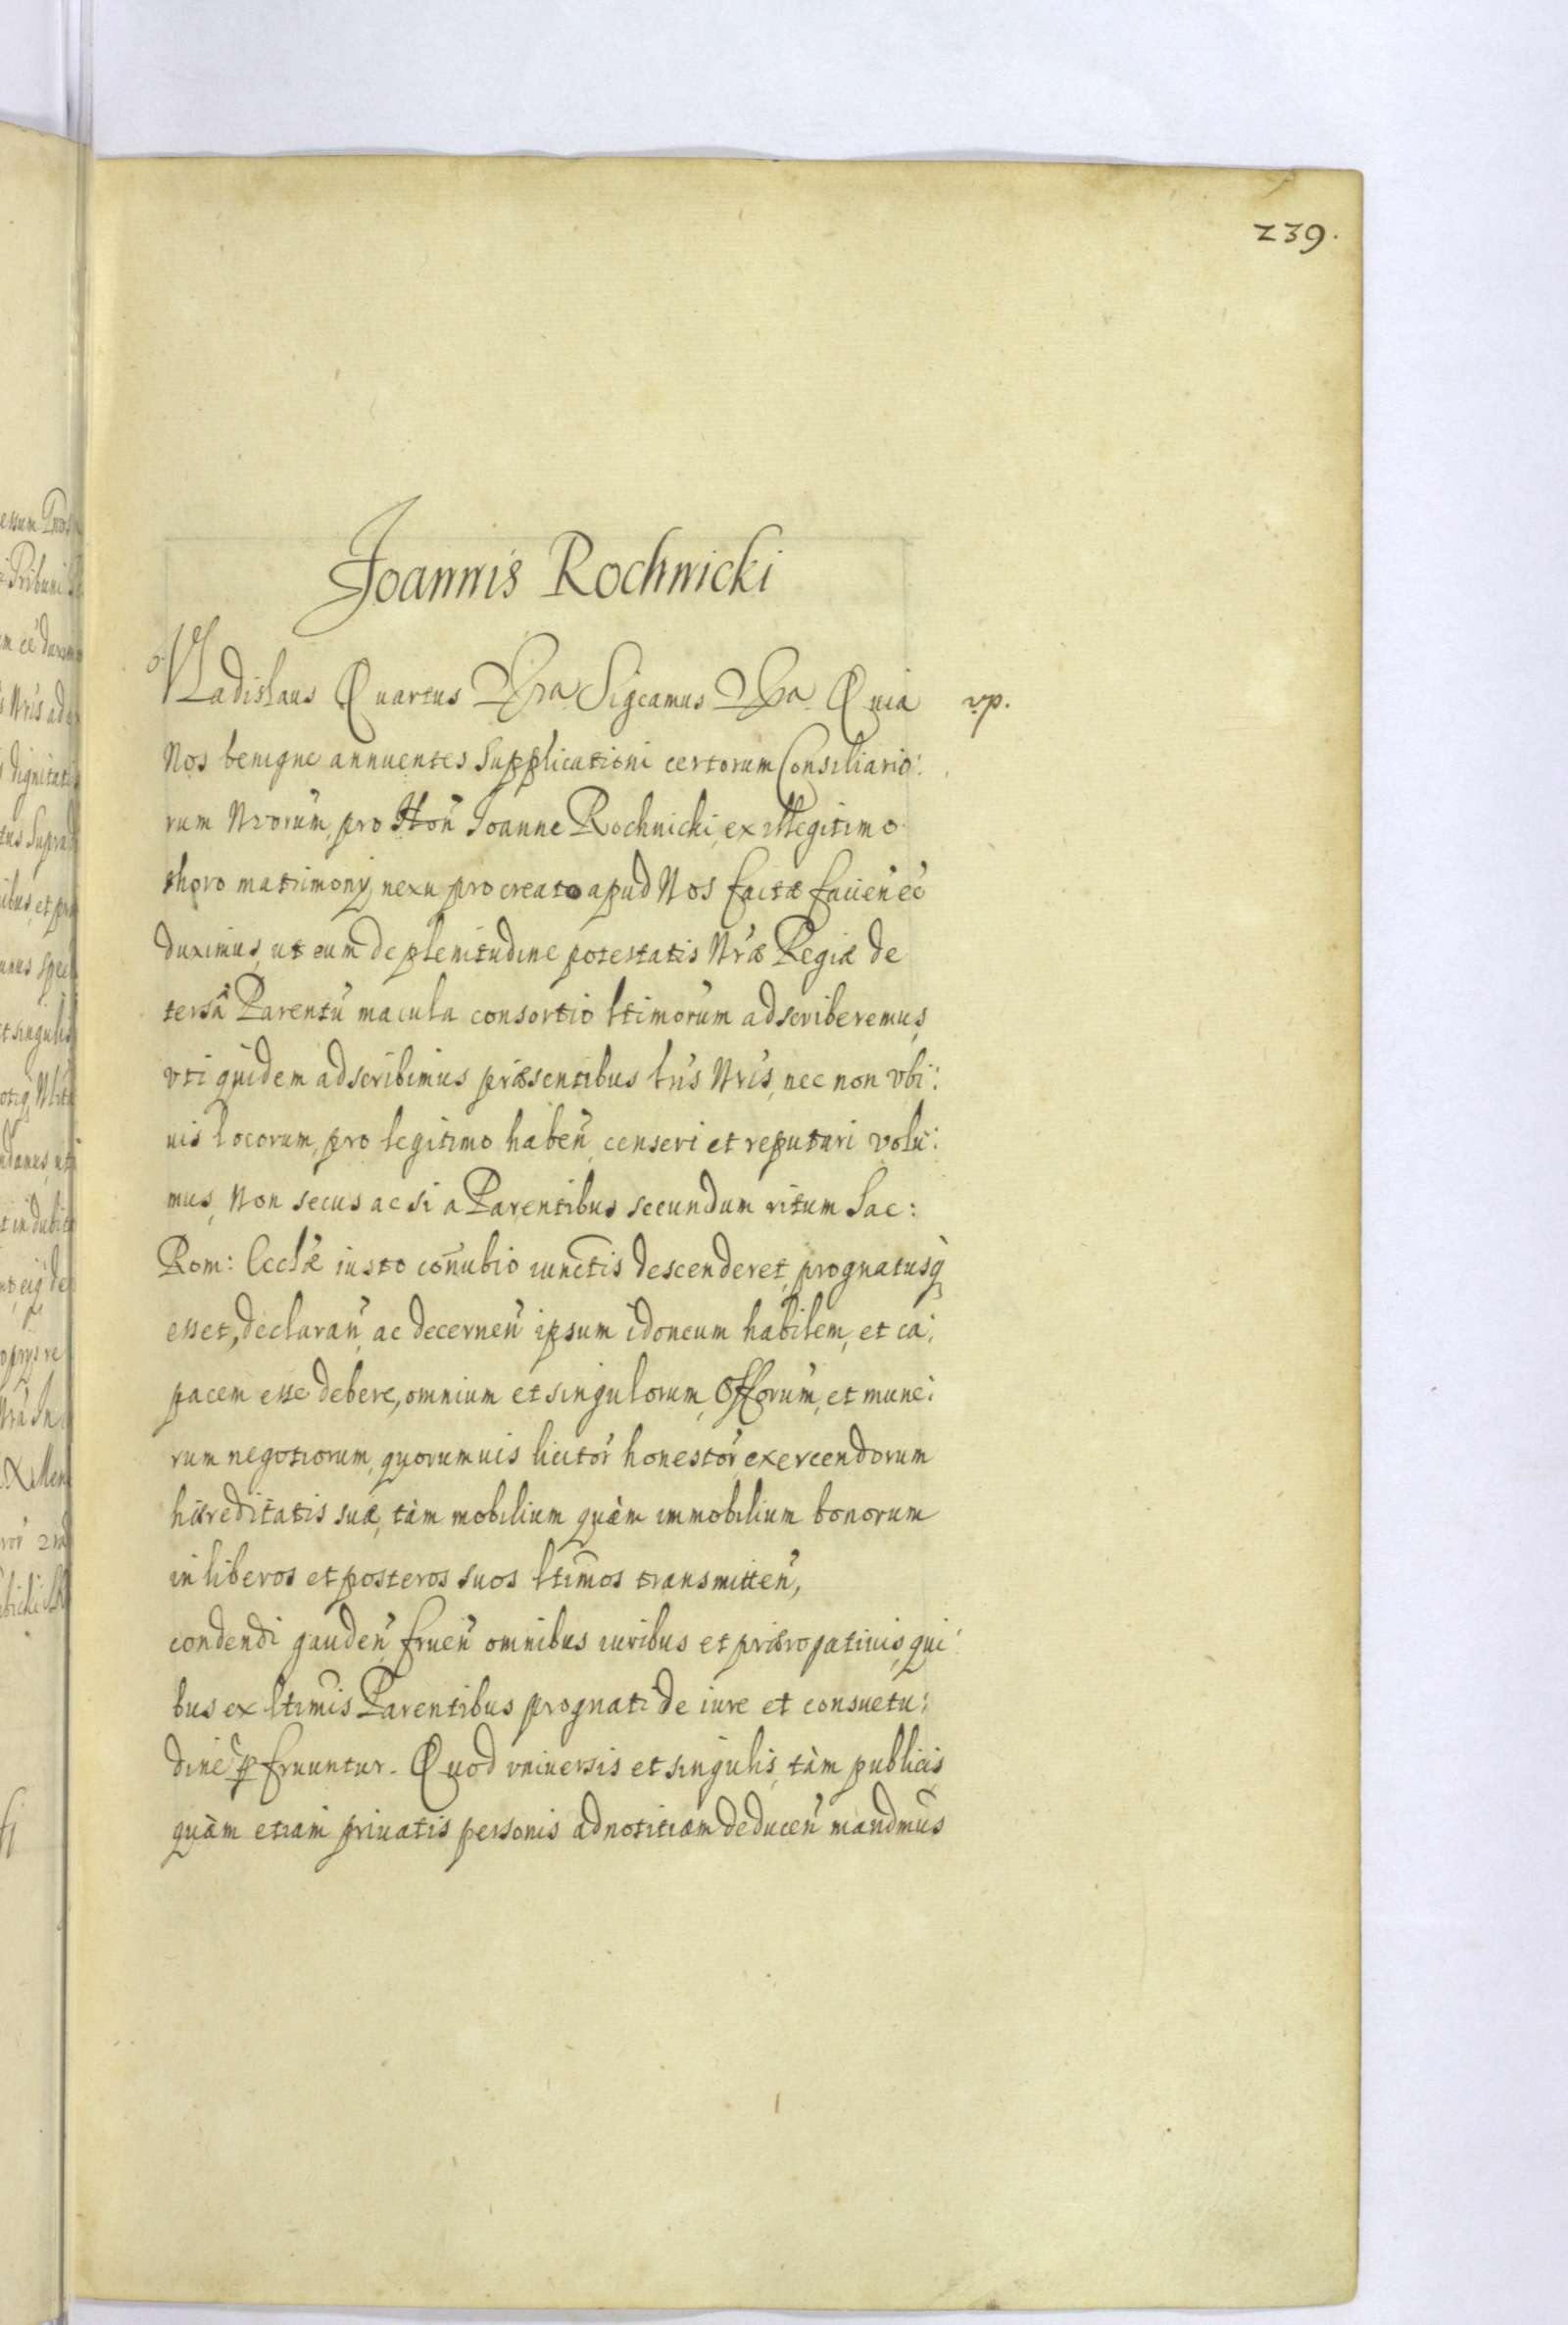 239.
Joannis Rochnicki
Vladislaus Quartus Sigcamus Quia
Nos benigne annuentes Supplicationi certorum Consiliario:
rum Nrorum, pro Hon Joanne Rochnicki, ex illegitimo
thoro matrimonÿ nexu procreato apud Nos factæ fauen
duximus, ut eum de plenitudine potestatis Nræ Regiæ de
tersâ Parentu macula consortio ltimorum adscriberemus,
vti quidem adscribimus præsentibus lris Nris, nec non vbi:
uis locorum, pro legitimo haben, censeri et reputari volu:
mus, Non secus ac si a Parentibus secundum ritum Sac:
Rom: Ecclæ iusto conubio iunctis descenderet, prognatusq
esset, declaran, ac decernen ipsum idoneum habilem, et ca:
pacem esse debere, omnium et singulorum, Offorum, et mune:
rum negotiorum, quorumuis licitor honestor exercendorum
hæreditatis suæ, tàm mobilium quàm immobilium bonorum
in liberos et posteros suos ltimos transmitten,
condendi gauden, fruen omnibus iuribus et prærogatiuis, qui:
bus ex ltimis Parentibus prognati de iure et consuetu:
dine p fruuntur. Quod vniuersis et singulis, tàm publicis
quàm etiam priuatis personis ad notitiam deducen mandmus